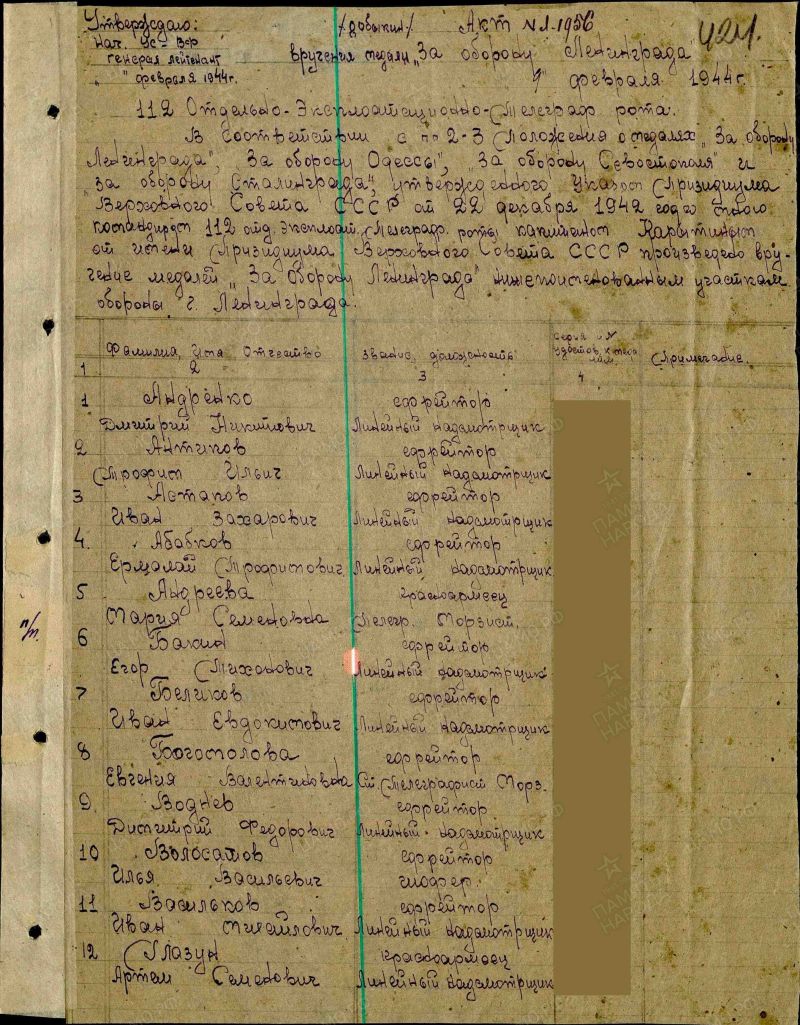 Утверждаю:
/Добыкин/ Акт №1-1956
424.
Нач. УС ВФ
генерал лейтенант
" " февраля 1944г.
вручения медали „За оборону Ленинграда"
февраля 1944г.
112 Отдельно-Эксплоатационно-Телеграф. рота.
В Соответствии с пп 2-3 Положения о медалях „За оборону
Ленинграда", „За оборону Одессы", „За оборону Севостополя" и
„за оборону Сталинграда", утвержденного Указом Призидиума
Верховного Совета СССР от 22 декабря 1942 года мною
командиром 112 отд. Эксплоат. Телеграф. роты капитаном
от имени Призидиума Верховного Совета СССР произведено вру-
чение медалей „За Оборону Ленинграда" нижепоименованным участкам
обороны г. Ленинграда.
Фамилия, Имя Отчество
звание, должность
Серия и №
удостов. к меда
лям.
Примечание.
1 2 3 4
1 Андренко ефрейтор
Дмитрий Никитович Линейный надзмотрщик
2 Антипов ефрейтор
Трофим Ильич Линейный надзмотрщик
3 Астапов ефрейтор
Иван Захарович Линейный надзмотрщик
4. Абабков ефрейтор
Ермалай Трофимович. Линейный надзмотрщик
5 Андреева красноармеец
Мария Семеновна Телегр. Морзист.
п/т.
6 Бакин
Егор Тихонович Линейный надзмотрщик
7 Беликов ефрейтор
Иван Евдокимович Линейный надзмотрщик
8 Богомолова ефрейтор
Евгения Валентиновна Ст. Телеграфист Морз.
9 Воднев ефрейтор
Димитрий Федорович Линейный надзмотрщик
10 Волосатов ефрейтор
Илья Васильевич шофер.
11 Васильков ефрейтор
Иван Линейный надзмотрщик
12 Глазун красноармеец
Артем Семенович Линейный надзмотрщик